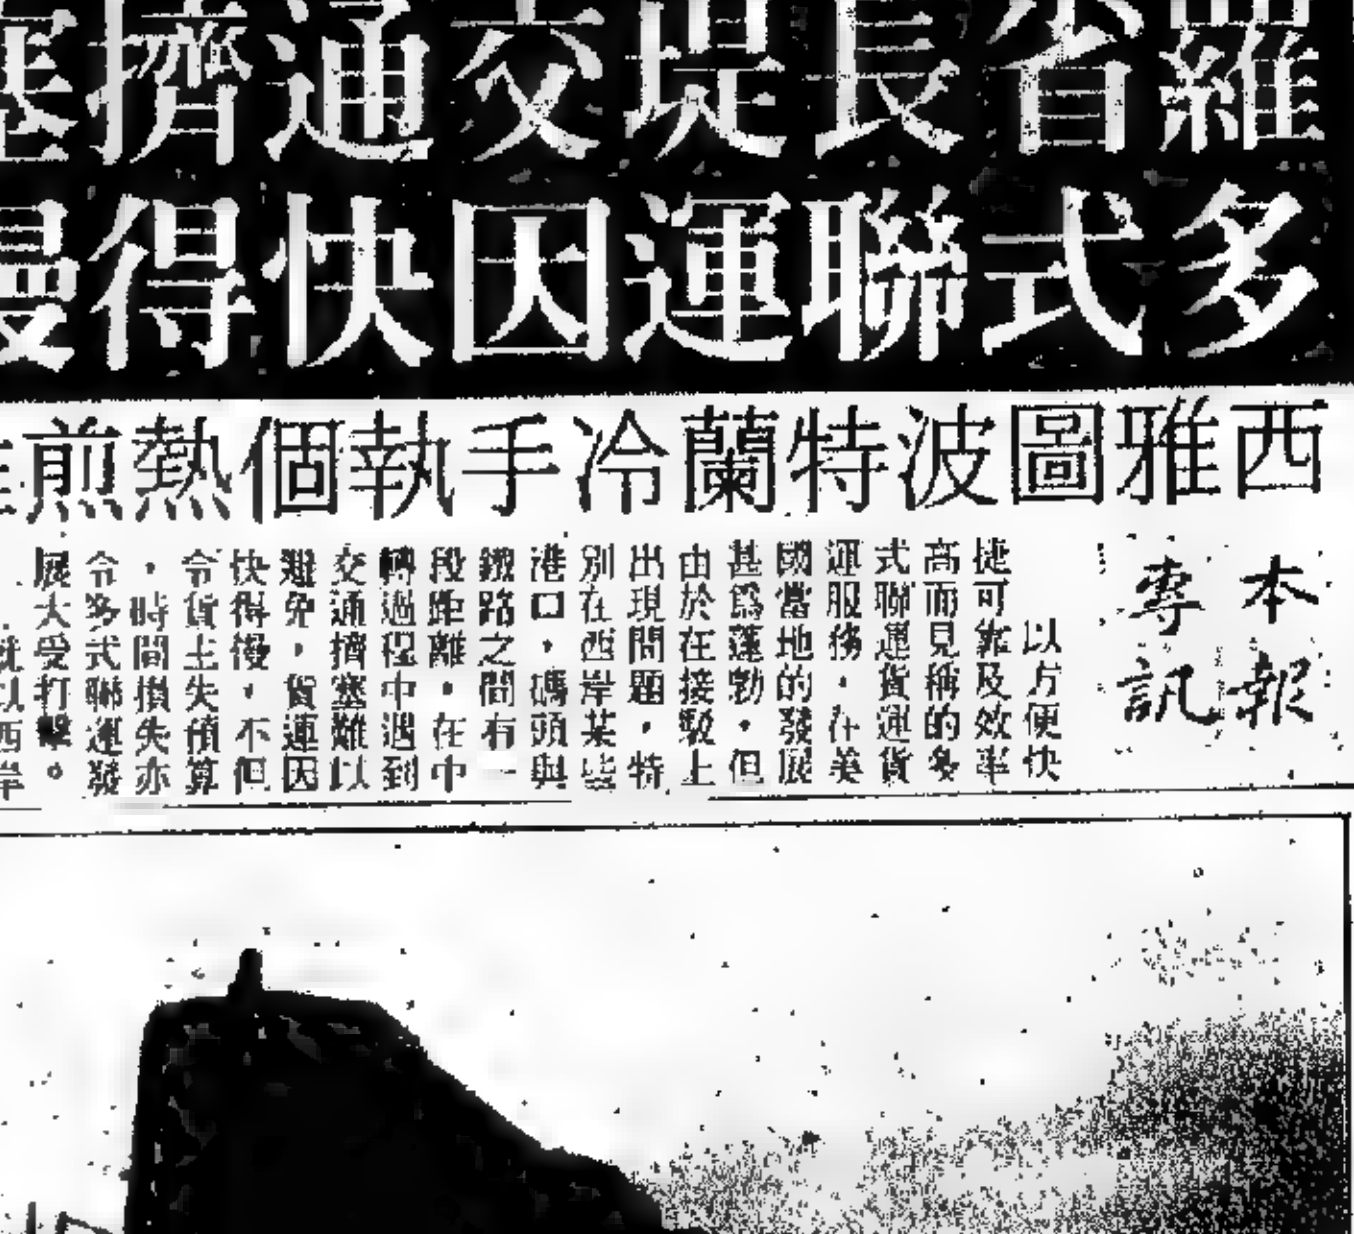 羅省長堤交通擠塞
多式聯運因快得慢
西雅圖波特蘭冷手執個熱煎
本報
專訊
以方便快
捷可靠及效率
高而見稱的多
式聯運貨運貨
運服務，在美
國當地的發展
甚爲蓬勃，但
由於在接駁上
出現問題，特
別在西岸某些
港口，碼頭與
鐵路之間有一
段距離，在中
轉過程中遇到
交通擠塞難以
避免，貨運因
快得慢，不但
令貨主失預算
，時間損失亦
令多式聯運發
展大受打擊。
就以西岸